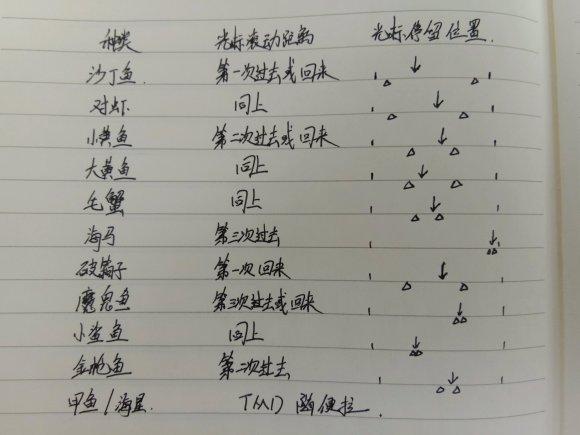 种类 光标滚动距离 光标停留位置
沙丁鱼. 第一次过去或回来
对虾 同上
小黄鱼 第二次过去或回来
大黄鱼 同上
毛蟹 同上
海马 第三次过去
破鞋子 第一次回来
魔鬼鱼 第三次过去或回来
小鲨鱼 同上
金枪鱼 第二次过去
甲鱼/海星. 随便拉.